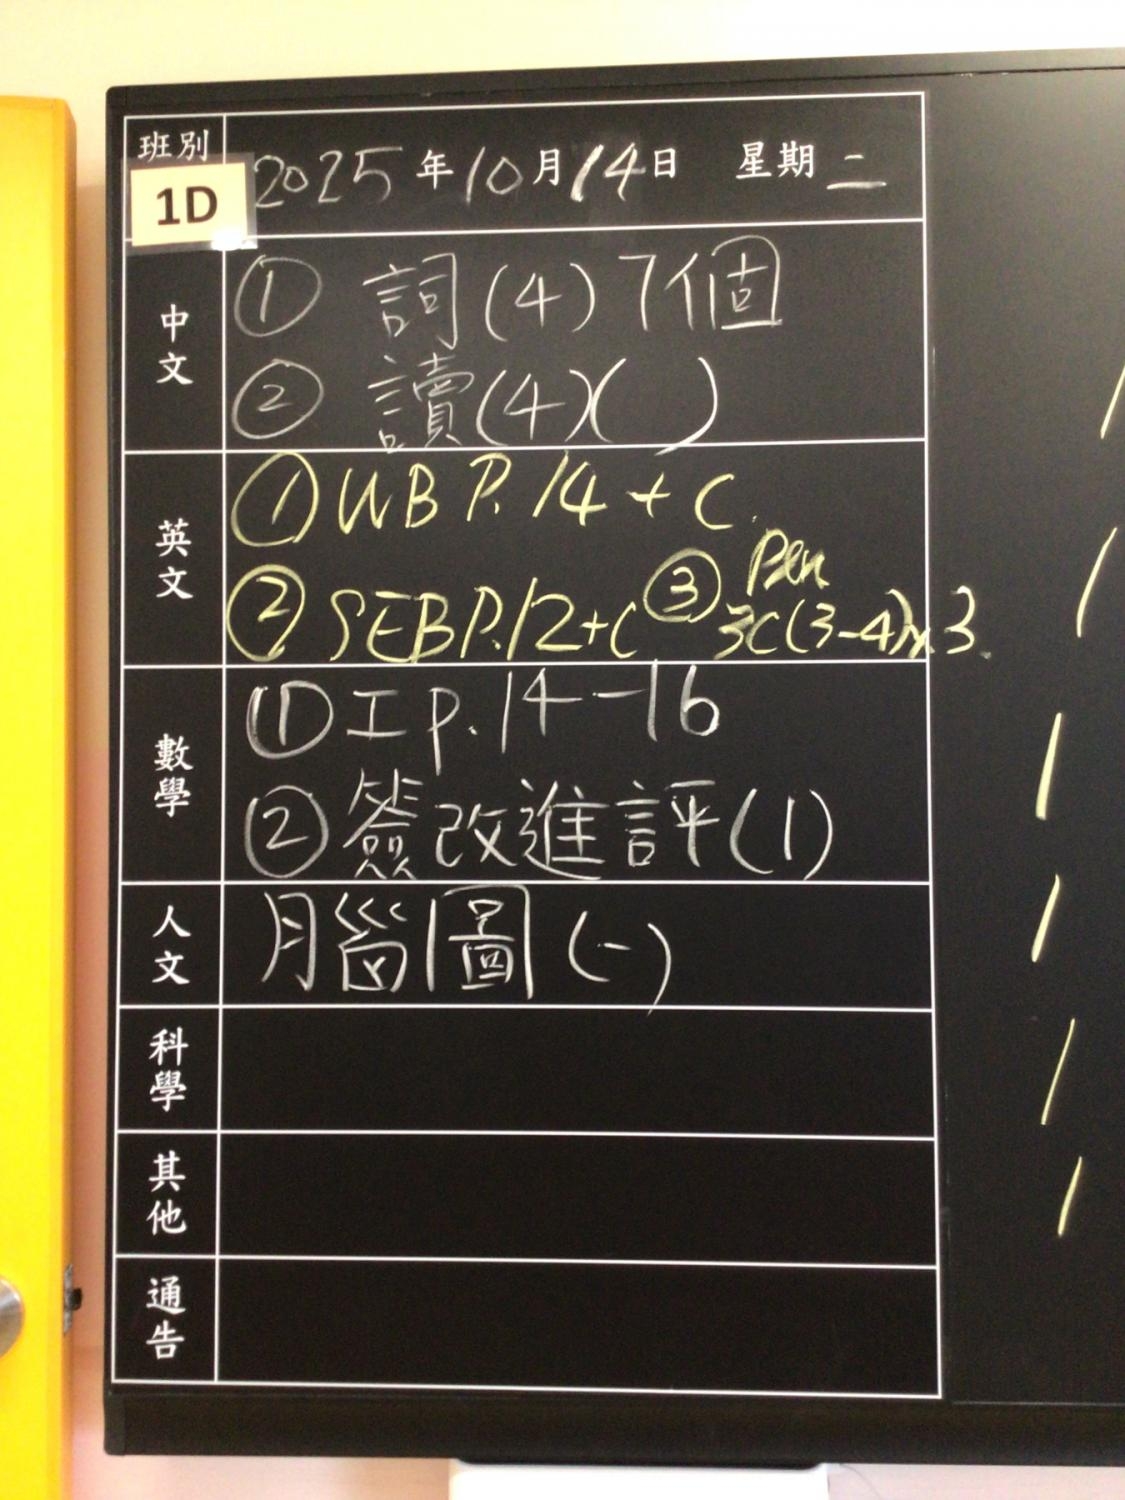 班別
1D
2025年10月14日 星期二
中文
① 詞(4)7個
② 讀(4)( )
英文
① WB P.14 + C.
② SEB P.12+C ③ Pen 3C(3-4)x3.
數學
① I p.14-16
② 簽改進評(1)
人文
腦圖(一)
科學
其他
通告